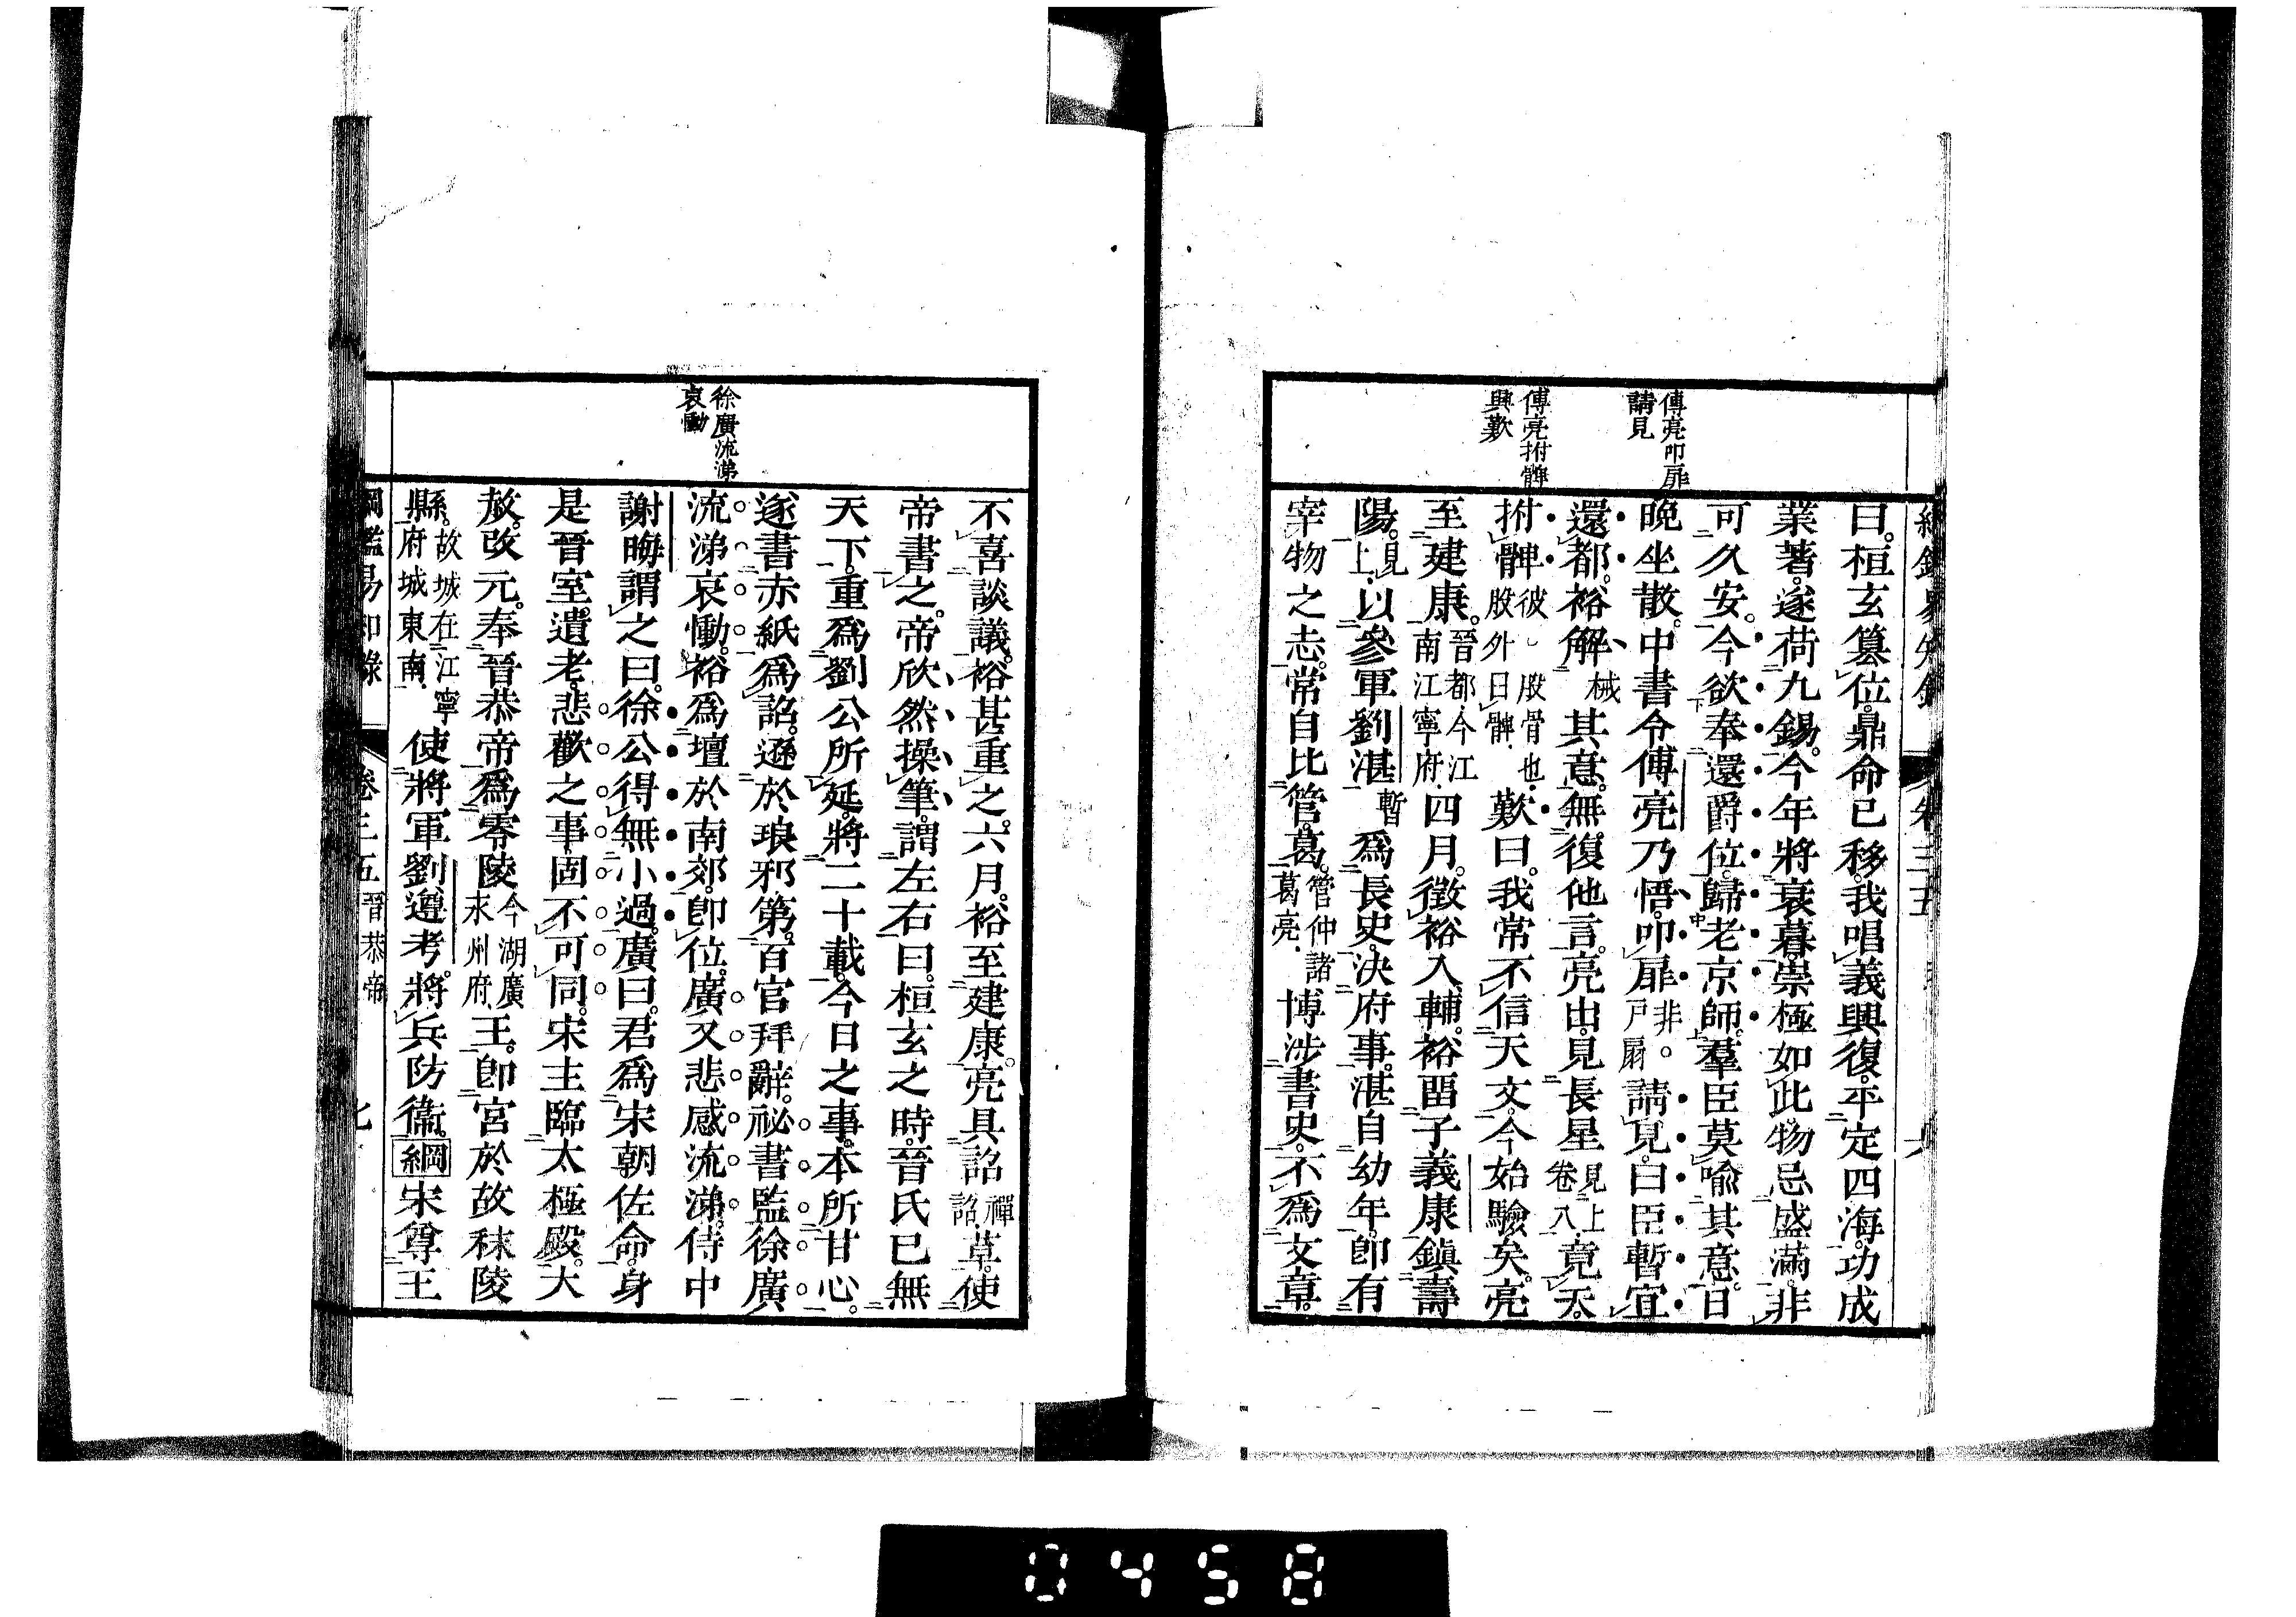 傅亮叩扉
請見
傅亮拊髀
興歎
曰。桓玄篡位。鼎命已移。我唱義興復。平定四海。功成
業著。遂荷九錫。今年將衰暮。崇極如此。物忌盛滿。非
可久安。今欲奉還爵位。歸老京師。羣臣莫喩其意。日
晩坐散。中書令傅亮乃悟。叩扉非。戶扇請見。白臣暫宜
還都。裕解械其意。無復他言。亮出。見長星見上卷八。竟天。
拊髀彼。股骨也。股外曰髀。歎曰。我常不信天文。今始驗矣。亮
至建康。晉都。今江南江寧府。四月。徵裕入輔。裕留子義康鎭壽
陽。見上。以參軍劉湛暫爲長史。決府事。湛自幼年。卽有
宰物之志。常自比管。葛。管仲諸葛亮。博涉書史。不爲文章。
徐廣流涕
哀慟
不喜談議。裕甚重之。六月。裕至建康。亮具詔禪詔。草。使
帝書之。帝欣然操筆。謂左右曰。桓玄之時。晉氏已無
天下。重爲劉公所延。將二十載。今日之事。本所甘心。
遂書赤紙爲詔。遜於琅邪第。百官拜辭。祕書監徐廣
流涕哀慟。裕爲壇於南郊。卽位。廣又悲感流涕。侍中
謝晦謂之曰。徐公得無小過。廣曰。君爲宋朝佐命。身
是晉室遺老。悲歡之事。固不可同。宋主臨太極殿。大
赦。改元。奉晉恭帝爲零陵今湖廣永州府王。卽宮於故秣陵
縣。故城在江寧府城東南。使將軍劉遵考將兵防衞。綱宋尊王
綱鑑易知錄 卷三五 晉恭帝 七